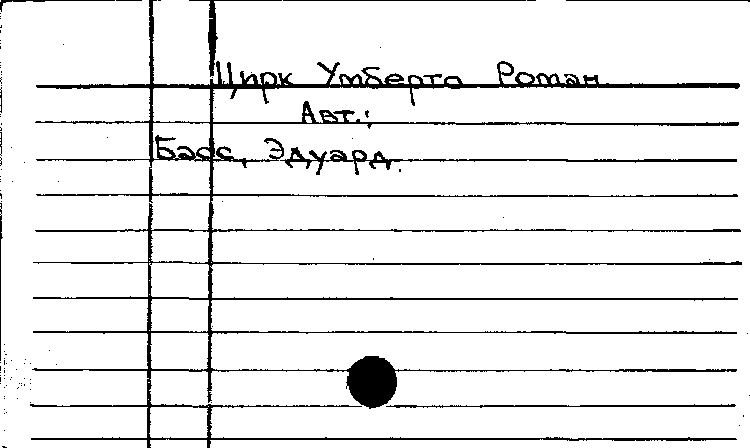 Цирк Умберто Роман
Авт.:
Басс, Эдуард.